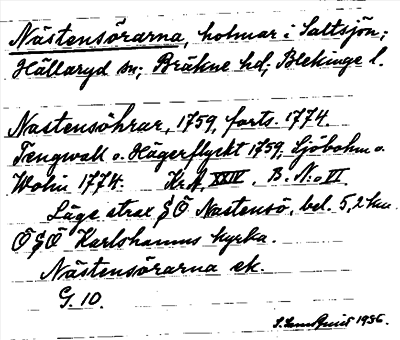 Nästensörarna, holmar i Saltsjön;
Hällaryd sn; Bräkne hd; Blekinge l.
Nastensöhrar, 1759, forts. 1774.
Tengwall o. Hägerflyckt 1759, Sjöbohm o.
Wohin 1774. Kr.A, XXIV, B. N:o VI
Läge strax § Ö Nastensö, bel. 5,2 km.
Ö § Ö Karlshamns kyrka.
Nästensörarna ek.
G. 10.
1936.